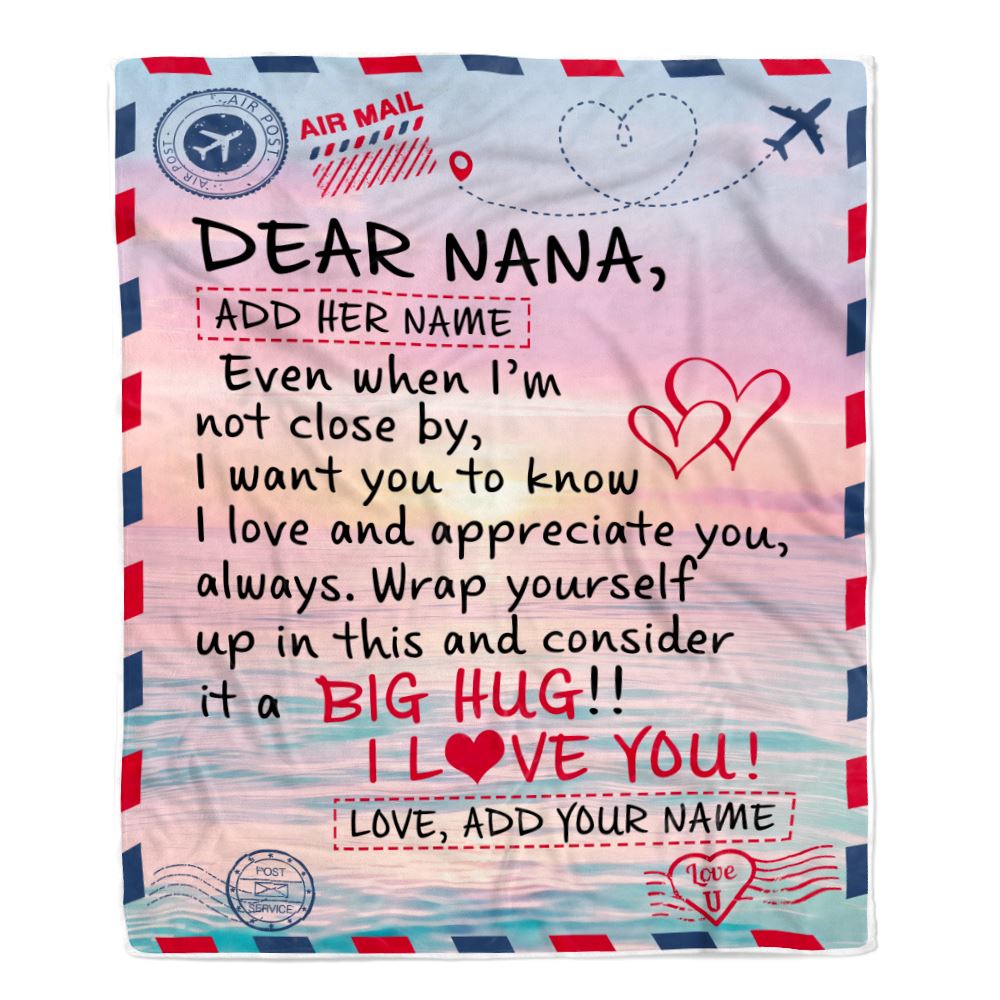 AIR POST
AIR POST
AIR POST
AIR MAIL
DEAR NANA,
ADD HER NAME
Even when I'm
not close by,
I want you to know
I love and appreciate you,
always. Wrap yourself
up in this and consider
it a BIG HUG!!
I L♥VE YOU!
LOVE, ADD YOUR NAME
POST
SERVICE
Love
U